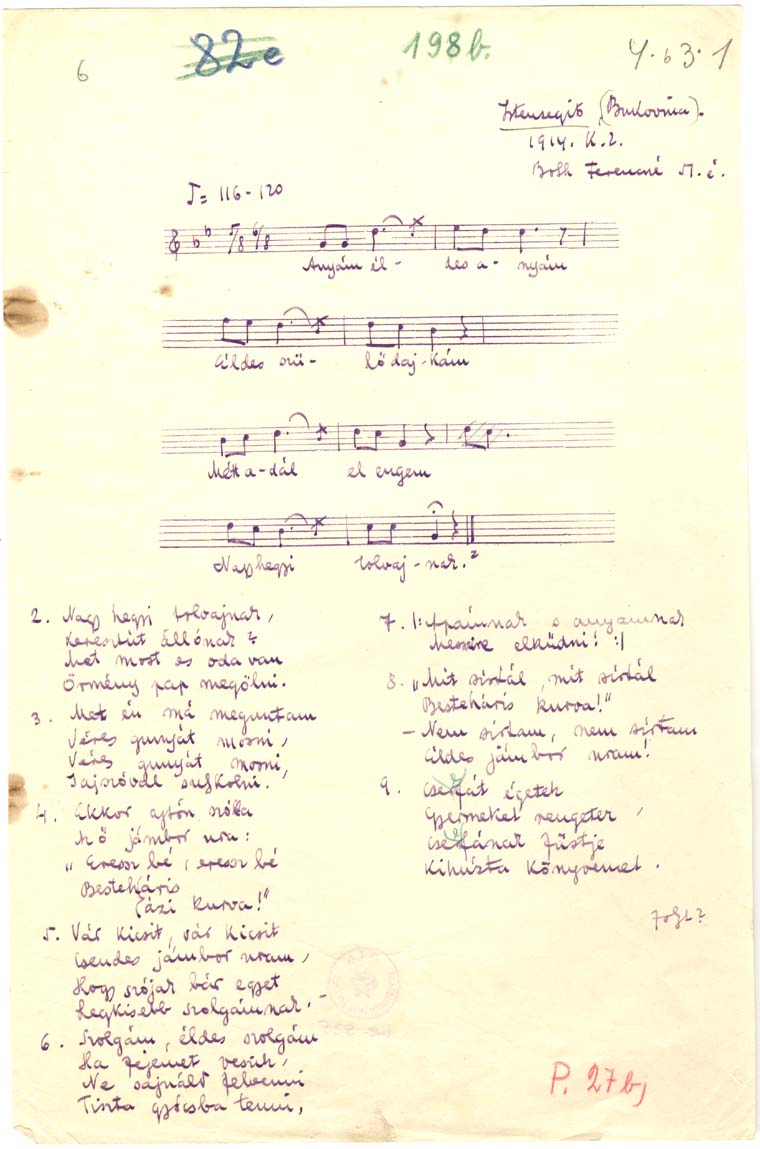 6
82e
198b.
4.63.1
Istensegíts (Bukovina).
1914. K.Z.
Both Ferencné 51. é.
♪= 116-120
7/8 6/8
Anyám él- des a- nyám
Éldes szü- lődaj-kám
Métt a-dál el engem
Nagyhegyi tolvaj-nak.²
2. Nagy hegyi tolvajnak,
Keresztút állónak?
Met most es oda van
Örmény pap megölni.
3. Met én má meguntam
Véres gunyát mosni,
Véres gunyát mosni,
Jajszóval sulkolni.
4. Ekkor ajtón szóla
Az ő jámbor ura:
"Eressz bé, eressz bé
Bestekáris
Lázi kurva!"
5. Vár kicsit, vár kicsit
Csendes jámbor uram,
Hogy szójak bár egyet
Legkisebb szolgámnak. -
6. Szolgám, éldes szolgám
Ha fejemet veszik,
Ne sajnáld felvenni
Tiszta gyócsba tenni,
7. |: Apámnak s anyámnak
Messzire elküdni! :|
8. "Mit sírtál, mit sírtál
Bestekáris kurva!"
- Nem sírtam, nem sírtam
Éldes jámbor uram!
9. Cserefát égetek
Gyermeket rengetek,
Cserefának füstje
Kihúzta könyvemet.
P. 27b,